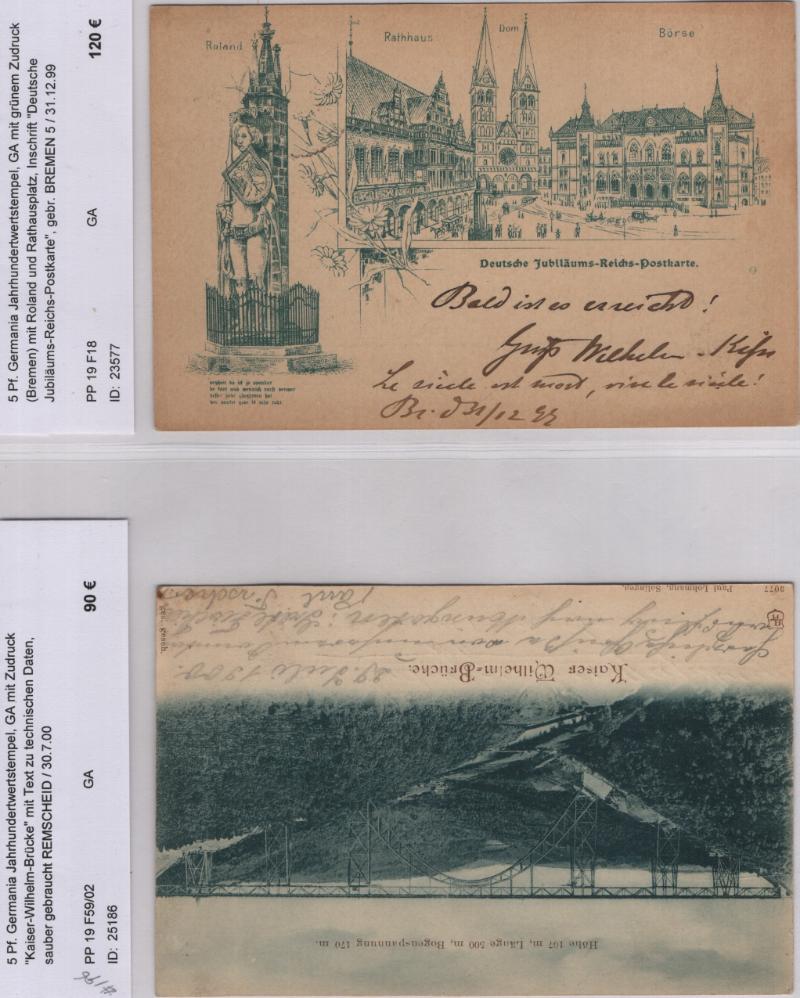 5 Pf. Germania Jahrhundertwertstempel, GA mit grünem Zudruck
(Bremen) mit Roland und Rathausplatz, Inschrift "Deutsche
Jubiläums-Reichs-Postkarte", gebr. BREMEN 5 / 31.12.99
PP 19 F18 GA 120 €
ID: 23577
Roland
Rathhaus
Dom
Börse
Deutsche Jubiläums-Reichs-Postkarte.
Bald ist es erreicht!
Gruß Wilhelm
Le siècle est mort, vive le siècle!
Br. d 31/12 99
5 Pf. Germania Jahrhundertwertstempel, GA mit Zudruck
"Kaiser-Wilhelm-Brücke" mit Text zu technischen Daten,
sauber gebraucht REMSCHEID / 30.7.00
PP 19 F59/02 GA 90 €
ID: 25186
Höhe 107 m, Länge 500 m, Bogenspannung 170 m.
Kaiser Wilhelm-Brücke.
29. Juli 1900.
ges. gesch.
Paul Lohmann, Solingen.
3077